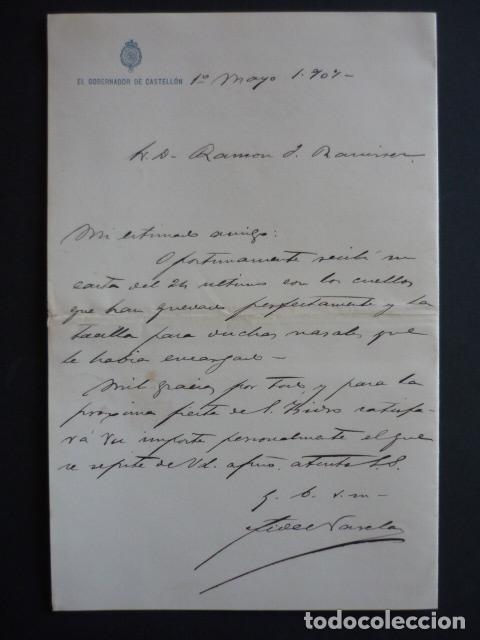 EL GOBERNADOR DE CASTELLÓN
1º Mayo 1.907-
Sr. D. Ramon J.
Mi estimado amigo:
Oportunamente recibí su
carta del 24 ultimo con los cuellos
que han quedado perfectamente y la
tacilla para duchas nasales que
le habia encargado -
Mil gracias por todo y para la
proxima fiesta de S. Isidro satisfa-
rá su importe personalmente el que
se repite de Vd. afmo. atento S.S.
q. b. s. m-
Fidel Varela
todocoleccion